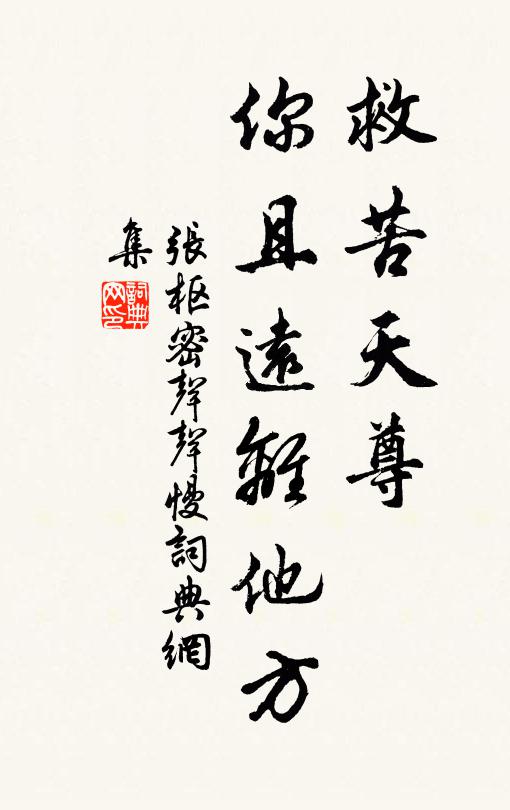 救苦天尊
你且遠離他方
張枢密聲聲慢詞典網
集
詞典
网印